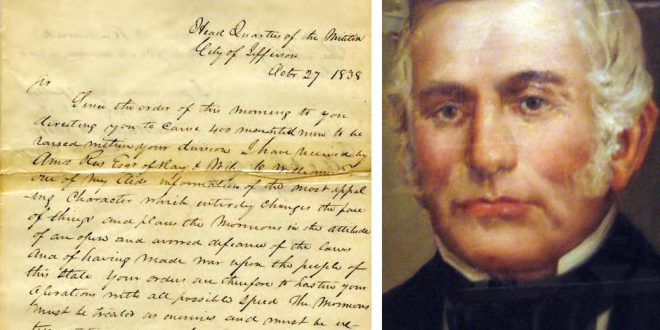 Head Quarters of the Militia
City of Jefferson
Octr 27 1838
Sir
Since the order of this morning to you
directing you to cause 400 mounted men to be
raised within your division I have received by
Amos Rees Esqr of Ray &
one of my aids information of the most appal
-ling character which entirely changes the face
of things and places the Mormons in the attitude
of an open and avowed defiance of the laws
and of having made war upon the people of
this State Your orders are therefore to hasten your
operations with all possible speed The Mormons
must be treated as enemies and must be ex-